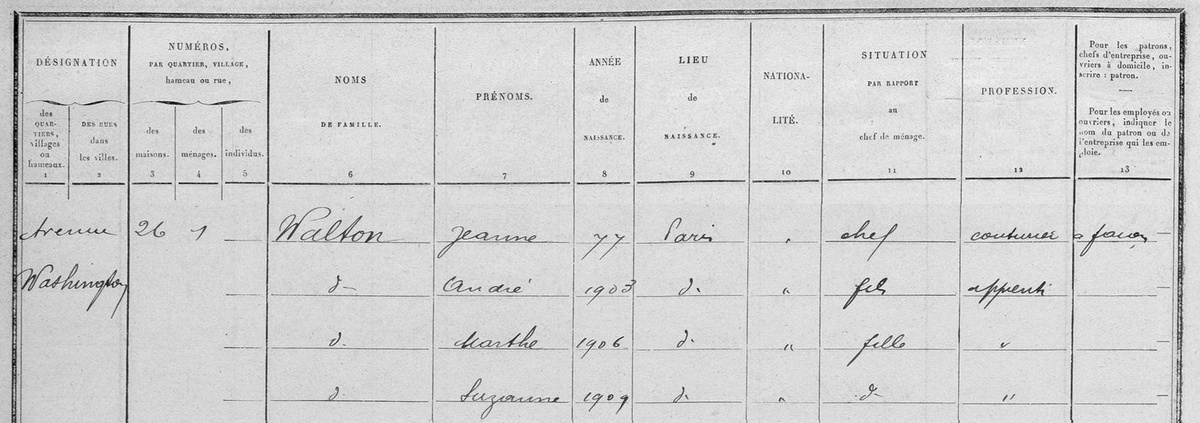 DÉSIGNATION
des QUARTIERS, villages ou hameaux.
DES RUES dans les villes.
NUMÉROS, PAR QUARTIER, VILLAGE, hameau ou rue,
des maisons.
des ménages.
des individus.
NOMS DE FAMILLE.
PRÉNOMS.
ANNÉE de NAISSANCE.
LIEU de NAISSANCE.
NATIONALITÉ.
SITUATION PAR RAPPORT au chef de ménage.
PROFESSION.
Pour les patrons, chefs d'entreprise, ouvriers à domicile, inscrire : patron.
Pour les employés ou ouvriers, indiquer le nom du patron ou de l'entreprise qui les emploie.
1 2 3 4 5 6 7 8 9 10 11 12 13
Avenue 26 1 Walton Jeanne 77 Paris " chef a façon
Washington d- André 1903 d. " fils apprenti
d. Marthe 1906 d. " fille "
d. Suzanne 1909 d. " d. "